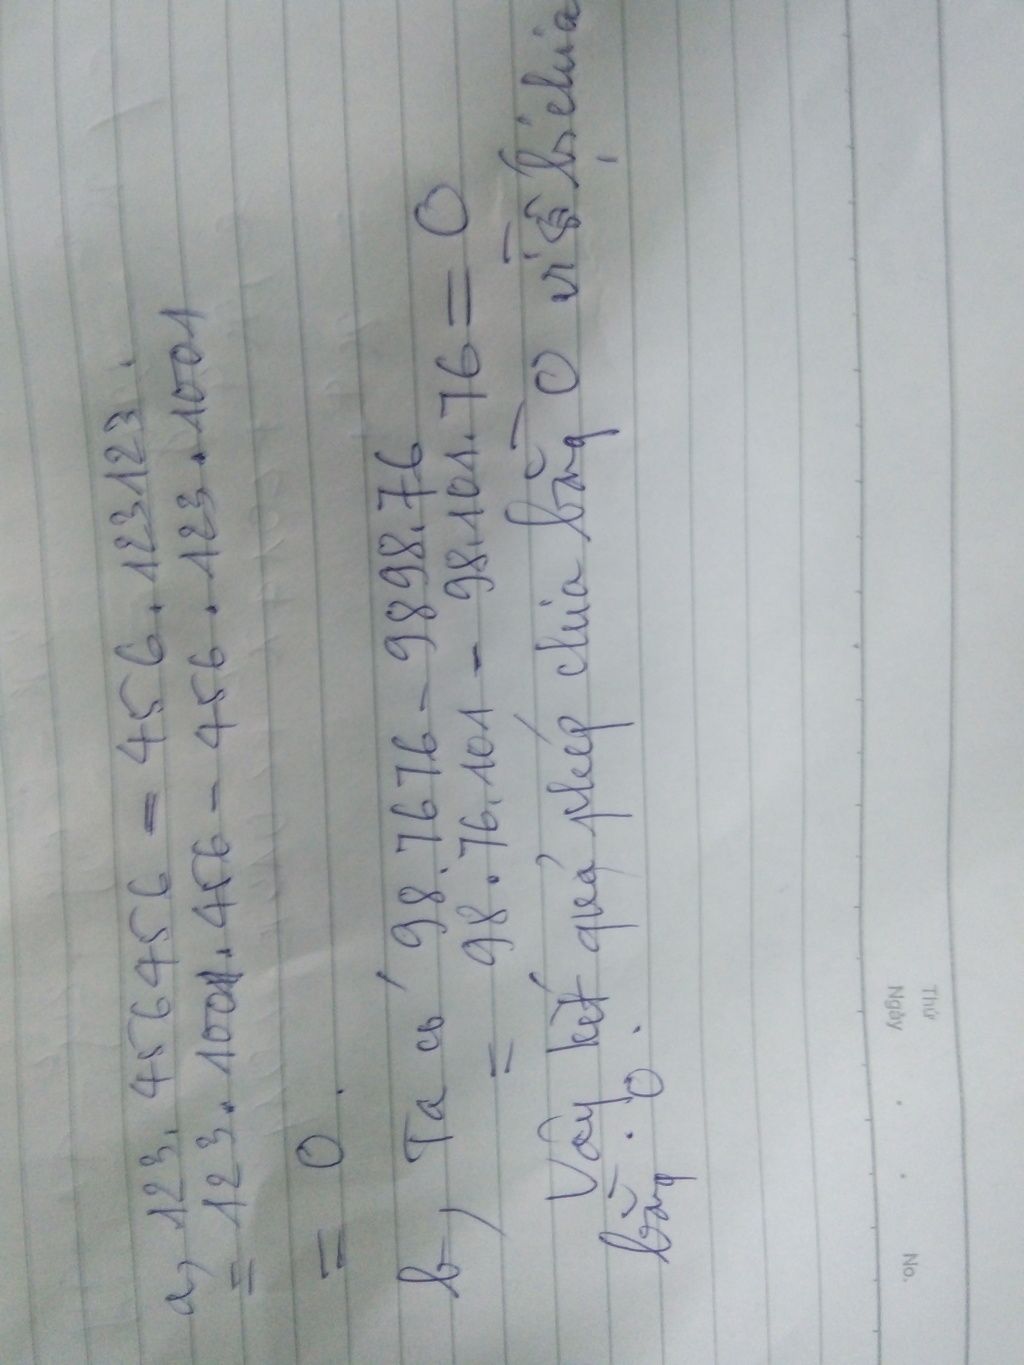 a, 123. 456456 = 456. 123123.
= 123. 1001. 456 - 456. 123. 1001
= 0.
b, Ta có 98.7676 - 9898.76
= 98.76.101 - 98.101.76 = 0
Vậy kết quả phép chia bằng 0 vì số bị chia
bằng 0.
Thứ
Ngày . .
No.